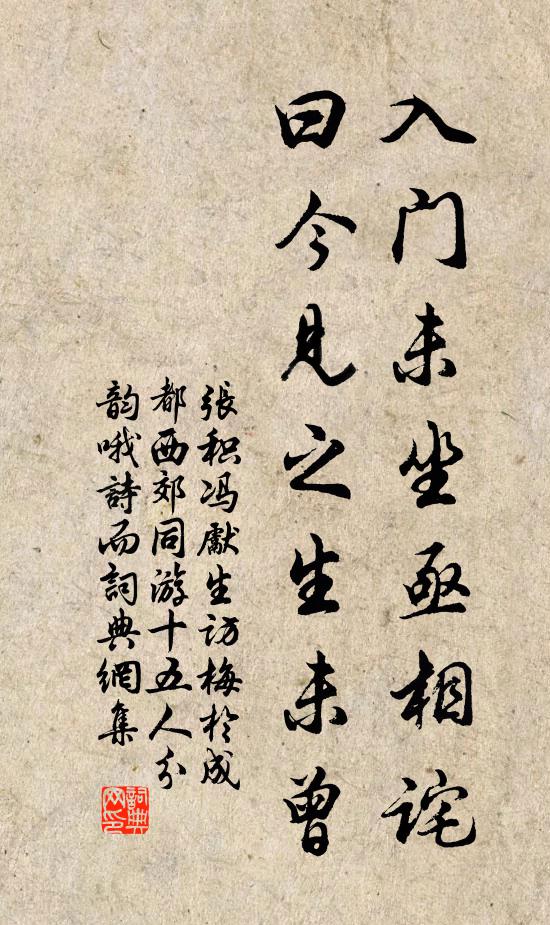 入门未坐亟相詫
曰今見之生未曾
張积冯獻生访梅於成
都西郊同游十五人分
韵哦詩而詞典網集
詞典网印